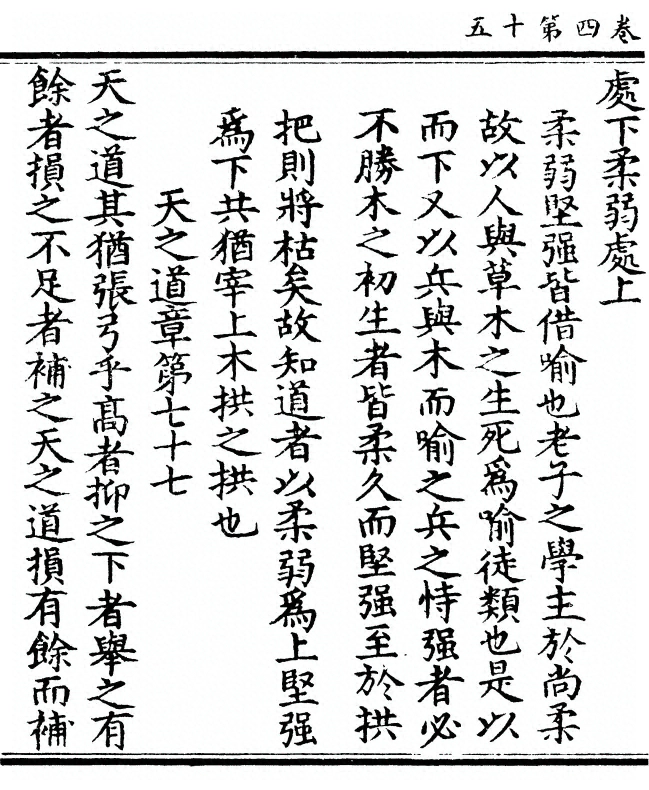 卷四第十五
處下柔弱處上
柔弱堅强皆借喻也老子之學主於尚柔
故以人與草木之生死爲喻徒類也是以
而下又以兵與木而喻之兵之恃强者必
不勝木之初生者皆柔久而堅强至於拱
把則將枯矣故知道者以柔弱爲上堅强
爲下共猶宰上木拱之拱也
天之道章第七十七
天之道其猶張弓乎髙者抑之下者舉之有
餘者損之不足者補之天之道損有餘而補